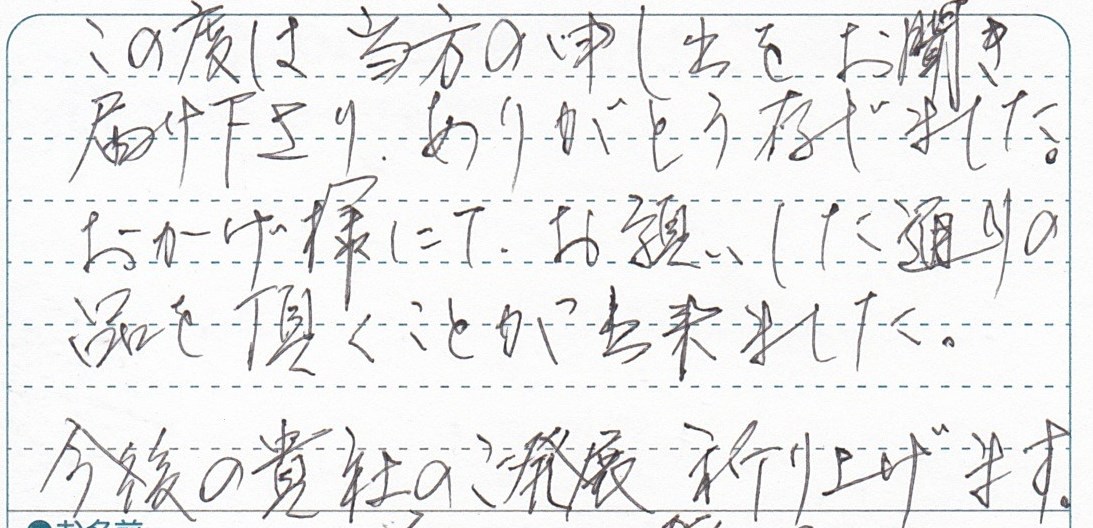 この度は当方の申し出をお聞き
届け下さり、ありがとう存じました。
おかげ様にて、お願いした通りの
品を頂くことが出来ました。
今後の貴社のご発展祈り上げます。
●お名前